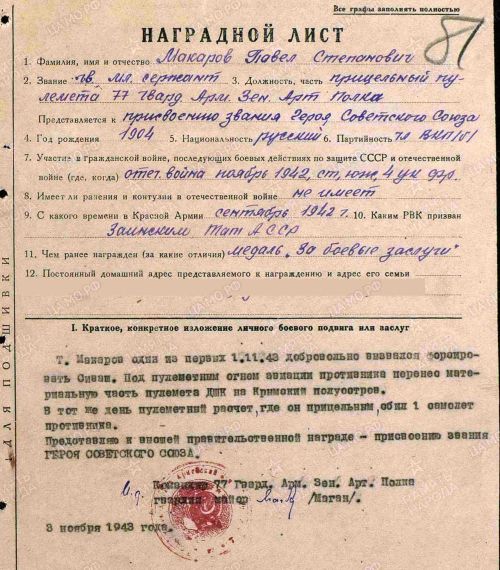 Все графы заполнять полностью
81
НАГРАДНОЙ ЛИСТ
1. Фамилия, имя и отчество Макаров Павел Степанович
2. Звание гв. мл. сержант 3. Должность, часть прицельный пу-
лемета 77 Гвард. Арм. Зен. Арт Полка
Представляется к присвоению звания Героя Советского Союза
4. Год рождения 1904 5. Национальность русский 6. Партийность чл ВКП/б/
7. Участие в Гражданской войне, последующих боевых действиях по защите СССР и отечественной
войне (где, когда) отеч. война ноябрь 1942, ст, юж, 4 ук фр.
8. Имеет ли ранения и контузии в отечественной войне не имеет
9. С какого времени в Красной Армии сентябрь 1942 г. 10. Каким РВК призван
Заинским Тат АССР
11. Чем ранее награжден (за какие отличия) медаль „За боевые заслуги"
12. Постоянный домашний адрес представляемого к награждению и адрес его семьи
I. Краткое, конкретное изложение личного боевого подвига или заслуг
Т. Макаров один из первых 1.11.43 добровольно вызвался форсиро-
вать Сиваш. Под пулеметным огнем авиации противника перенес мате-
риальную часть пулемета ДШК на Крымский полуостров.
В тот же день пулеметный расчет, где он прицельным, сбил 1 самолет
противника.
Представляю к высшей правительственной награде – присвоению звания
ГЕРОЯ СОВЕТСКОГО СОЮЗА.
И.д. Командир 77 Гвард. Арм. Зен. Арт. Полка
гвардии майор /Маган/.
3 ноября 1943 года.
ДЛЯ ПОДШИВКИ